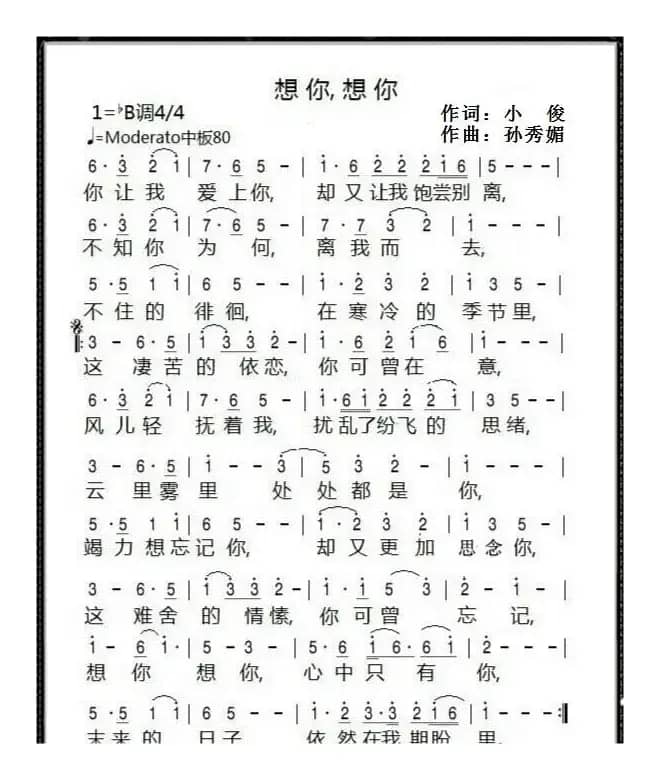 想你,想你
1=♭B调4/4
作词：小 俊
♩=Moderato中板80
作曲：孙秀媚
6·3 2 1|7·6 5 -|1·6 2 2 2 1 6|5 - - -|
你让我 爱上你, 却又让我饱尝别离,
6·3 2 1|7·6 5 - -|7·7 3 2|1 - - -|
不知你 为何, 离我而去,
5·5 1 1|6 5 - -|1·2 3 2|1 3 5 -|
不住的 徘徊, 在寒冷的 季节里,
‖:3 - 6·5|1 3 3 2 -|1·6 2 1 6|1 - - -|
这 凄苦的依恋, 你可曾在 意,
6·3 2 1|7·6 5 -|1·6 1 2 2 2 1|3 5 - -|
风儿轻 抚着我, 扰乱了纷飞的 思绪,
3 - 6·5|1 - - 3|5 3 2 -|1 - - -|
云 里雾里 处处都是 你,
5·5 1 1|6 5 - -|1·2 3 2|1 3 5 -|
竭力想忘记你, 却又更加 思念你,
3 - 6·5|1 3 3 2 -|1·1 5 3|2 - 1 -|
这 难舍的情愫, 你可曾 忘记,
1 - 6 1·|5 - 3 -|5·6 1 6·6 1|2 - - -|
想 你 想 你, 心中只 有 你,
5·5 1 1|6 5 - -|1·2 3·3 2 1 6|1 - - -:‖
末来的 日子 依然在我期盼 里